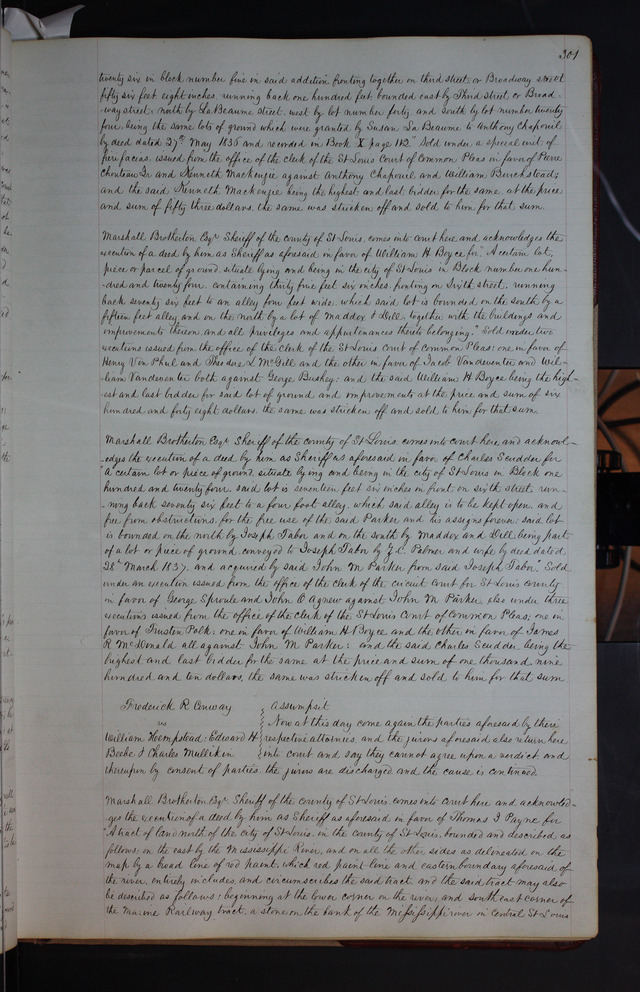 301
twenty six in block number five in said addition fronting together on third street or Broadway street
fifty six feet eight inches, running back one hundred feet bounded east by Third street or Broad-
way street; north by La Beaume street, west by lot number forty and south by lot number twenty
four, being the same lots of ground which were granted by Susan La Beaume to Anthony Chapouil
by deed dated 27th May 1836 and recorded in Book X page 112." Sold under a special writ of
fieri facias, issued from the office of the clerk of the St Louis Court of Common Pleas in favor of Pierre
Chouteau Jr and Kenneth Mackenzie against Anthony Chapouil and William Burchstead;
and the said Kenneth Mackenzie being the highest and last bidder for the same, at the price
and sum of fifty three dollars, the same was stricken off and sold to him for that sum.
Marshall Brotherton Esqr Sheriff of the county of St Louis, comes into court here and acknowledges the
execution of a deed by him as Sheriff as aforesaid in favor of William H. Boyce for "A certain lot,
piece or parcel of ground, situate lying and being in the city of St Louis in Block number one hun-
-dred and twenty four, containing thirty five feet six inches, fronting on Sixth street, running
back seventy six feet to an alley four feet wide, which said lot is bounded on the south by a
fifteen feet alley, and on the north by a lot of Maddox & Dell, together with the buildings and
improvements thereon, and all privileges and appurtenances thereto belonging." Sold under two
executions issued from the office of the clerk of the St Louis court of Common Pleas; one in favor of
Henry Von Phul and Theodore L McGill and the other in favor of Jacob Vandeventer and Wil-
-liam Vandeventer both against George Bushey; and the said William H Boyce being the high-
est and last bidder for said lot of ground and improvements at the price and sum of six
hundred and forty eight dollars, the same was stricken off and sold to him for that sum.
Marshall Brotherton Esqr Sheriff of the county of St Louis, comes into court here and acknowl-
-edges the execution of a deed by him as Sheriff as aforesaid in favor of Charles Scudder for
"A certain lot or piece of ground, situate lying and being in the city of St Louis in Block one
hundred and twenty four, said lot is seventeen feet six inches in front on sixth street, run-
-ning back seventy six feet to a four foot alley, which said alley is to be kept open and
free from obstructions, for the free use of the said Parker and his assigns forever, said lot
is bounded on the north by Joseph Tabor and on the south by Maddox and Dell, being part
of a lot or piece of ground conveyed to Joseph Tabor by Palmer and wife by deed dated
28th March 1837, and acquired by said John M Parker from said Joseph Tabor." Sold
under an execution issued from the office of the clerk of the circuit court for St Louis county
in favor of George Sproule and John O Agnew against John M. Parker, also under three
executions issued from the office of the clerk of the St Louis Court of Common Pleas; one in
favor of Trusten Polk; one in favor of William H Boyce and the other in favor of James
R McDonald all against John M. Parker; and the said Charles Scudder being the
highest and last bidder for the same at the price and sum of one thousand nine
hundred and ten dollars, the same was stricken off and sold to him for that sum
Frederick R. Conway Assumpsit
vs Now at this day come again the parties aforesaid by there
William Hempstead; Edward H respective attornies, and the jurors aforesaid also return here
Beebe & Charles Mullikin into court and say they cannot agree upon a verdict and
thereupon by consent of parties, the jurors are discharged and the cause is continued
Marshall Brotherton Esqr Sheriff of the county of St Louis comes into court here and acknowled-
ges the execution of a deed by him as Sheriff as aforesaid in favor of Thomas J Payne for
A tract of land north of the city of St Louis, in the county of St Louis, bounded and described, as
follows, on the east by the Mississippi River, and on all the other sides as delineated on the
map by a head line of red paint, which red paint line and eastern boundary aforesaid of
the river, entirely includes, and circumscribes the said tract, and the said tract may also
be described as follows; beginning at the lower corner on the river, and southeast corner of
the Marine Railway tract, a stone on the bank of the Mississippi river in Central St Louis